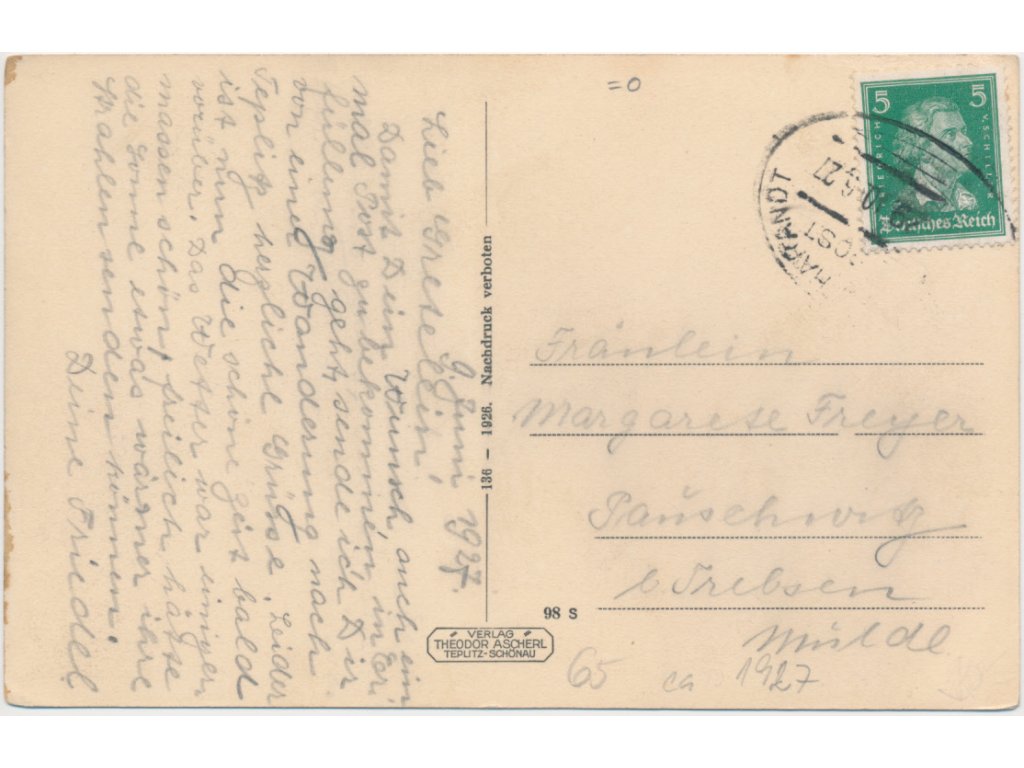 9. Juni 1927.
Lieb Gretellein!
Damit Dein Wunsch, auch ein
mal Post zu bekommen, in Er-
füllung geht, sende ich Dir
von einer Wanderung nach
Teplitz herzliche Grüsse. Leider
ist nun die schöne Zeit bald
vorüber. Das Wetter war einiger
massen schön, freilich hätte
die Sonne etwas wärmer ihre
Strahlen senden können.
Deine Friedel
136 – 1926. Nachdruck verboten
98 S
VERLAG
THEODOR ASCHERL
TEPLITZ-SCHÖNAU
=0
5 5
FRIEDRICH V. SCHILLER
Deutsches Reich
THARANDT
Fräulein
Margarete Freyer
Pauschwitz
b. Trebsen
Mulde
65 ca 1927